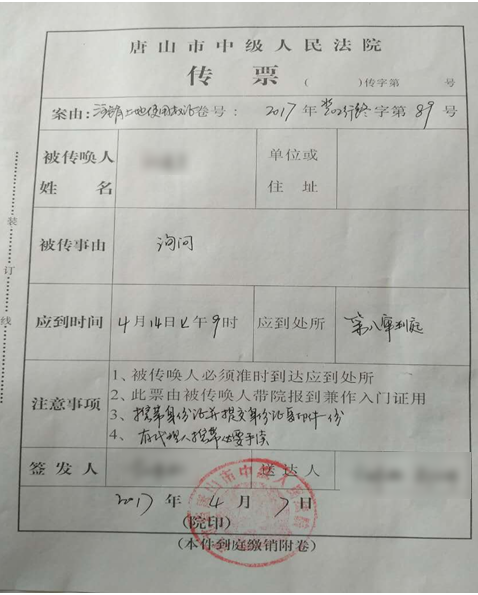 唐山市中级人民法院
传票
( )传字第 号
案由：注销土地使用权证 卷号： 2017年冀02行终字第89号
被传唤人姓名
单位或住址
被传事由 询问
应到时间 4月14日上午9时 应到处所 第八审判庭
注意事项
1、被传唤人必须准时到达应到处所
2、此票由被传唤人带院报到兼作入门证用
3、携带身份证并提交身份证复印件一份
4、有代理人携带必要手续
签发人 送达人
2017年4月7日
(院印)
(本件到庭缴销附卷)
装订线